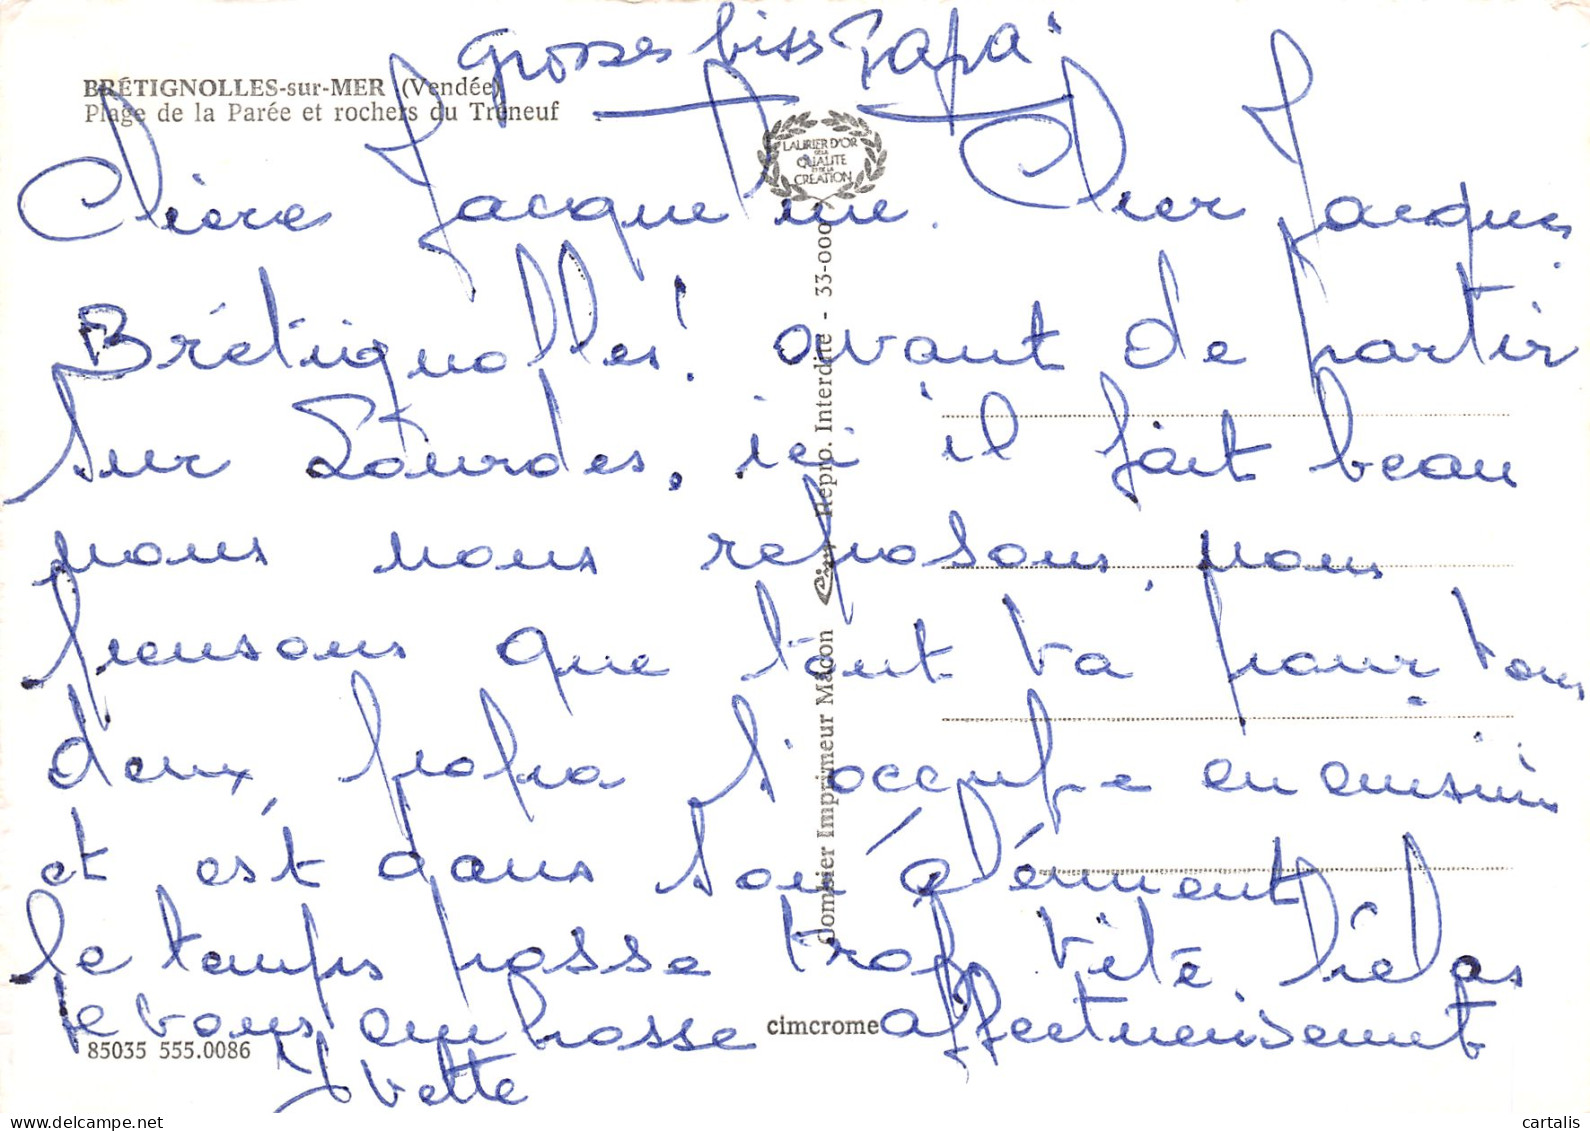 grosses biss Papa
BRÉTIGNOLLES-sur-MER (Vendée)
Plage de la Parée et rochers du Truneuf
LAURIER D'OR
DE LA
QUALITE
ET DE LA
CREATION
Chère Jacqueline. Cher Jacques
Brétignolles! avant de partir
sur Lourdes, ici il fait beau
nous nous reposons, nous
pensons que tout va pour vous
deux, papa s'occupe en cuisine
et est dans son élément
le temps passe trop vite hélas
je vous embrasse affectueusement
Yvette
85035 555.0086
cimcrome
Combier Imprimeur Macon Cim Repro. Interdite - 33-000
cartalis